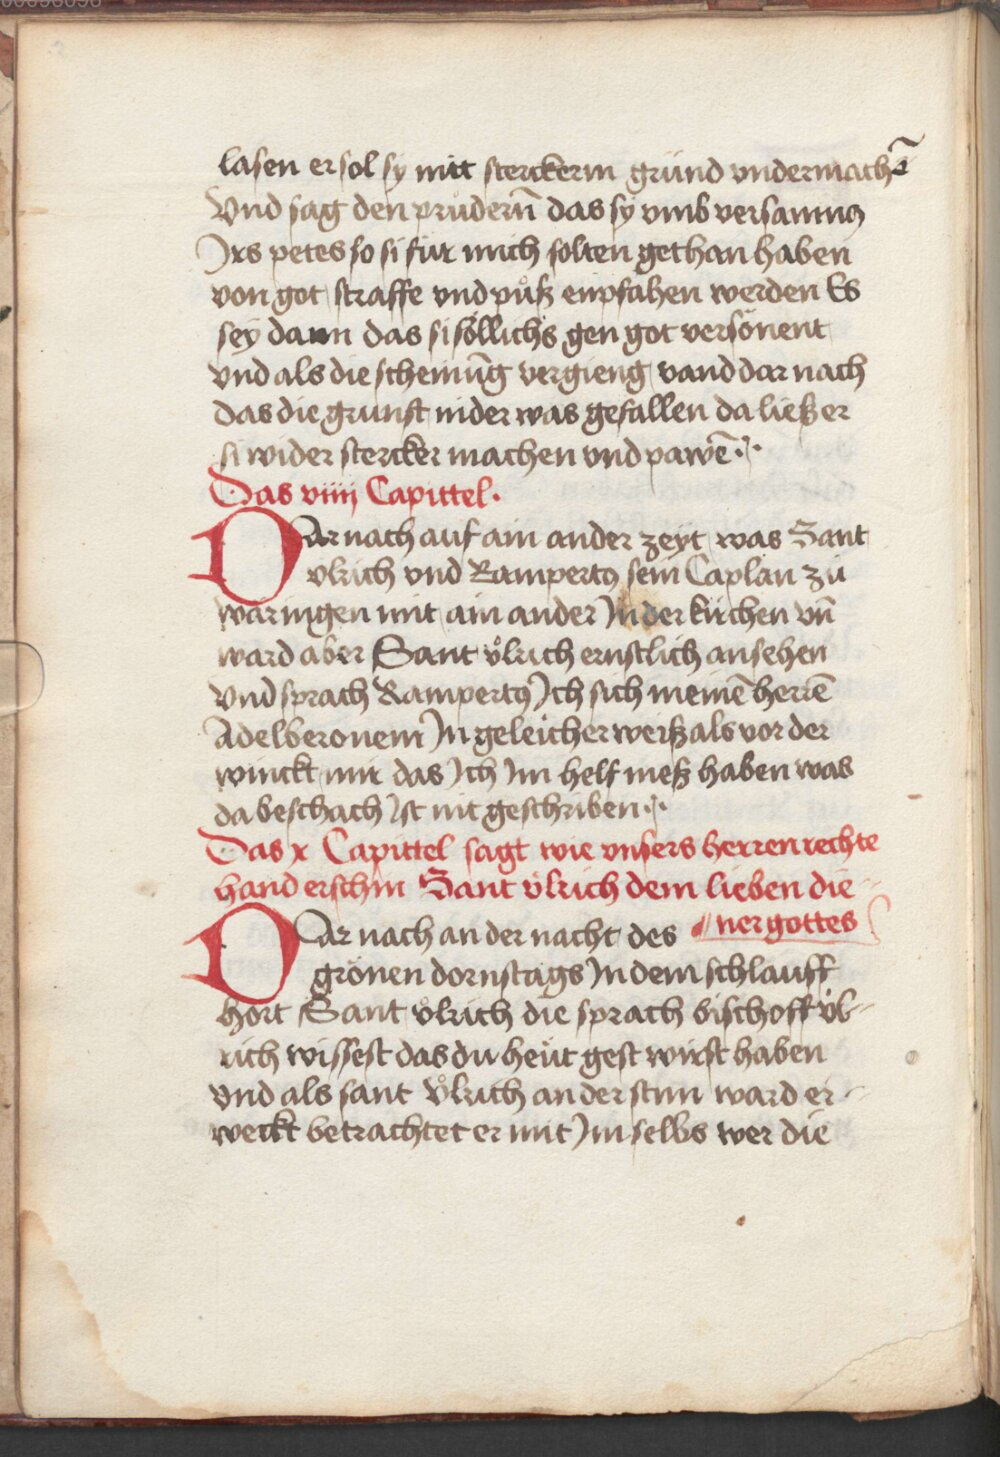 lasen er sol sy mit sterckerm gründ vndermachē
Vnd sag den průdern̄ das sy vmb versamnꝰ
Irs petes so si für mich solten gethan haben
von got straffe vnd půß enpfahen werden Es
sey dann das si söllichs gen got versönent
vnd als die scheinūg vergieng vand dar nach
das die grunst nider was gefallen da ließ er
si wider stercker machen vnd pawē
Das viiij Capittel
DAr nach auf ain ander zeyt was Sant
vlrich vnd Rampertꝰ sein Caplan zů
waringen mit ain ander In der kirchen vn̄
ward aber Sant vͦlrich ernstlich ansehen
vnd sprach Rampertꝰ Ich sich meinē herrē
Adelberonem In geleicher weiß als vor der
winckt mir das Ich Im helf meß haben was
da beschach Ist nit geschriben
Das x Capittel sagt wie vnsers herren rechte
hand erschin Sant vͦlrich dem lieben die
ner gottes
DAr nach an der nacht des
grönen dornstags In dem schlauff
hort Sant vͦlrich die sprach bischoff vͦl
rich wissest das du heüt gest wirst haben
vnd als sant vͦlrich an der stim ward er
weckt betrachtet er mit Im selbs wer die